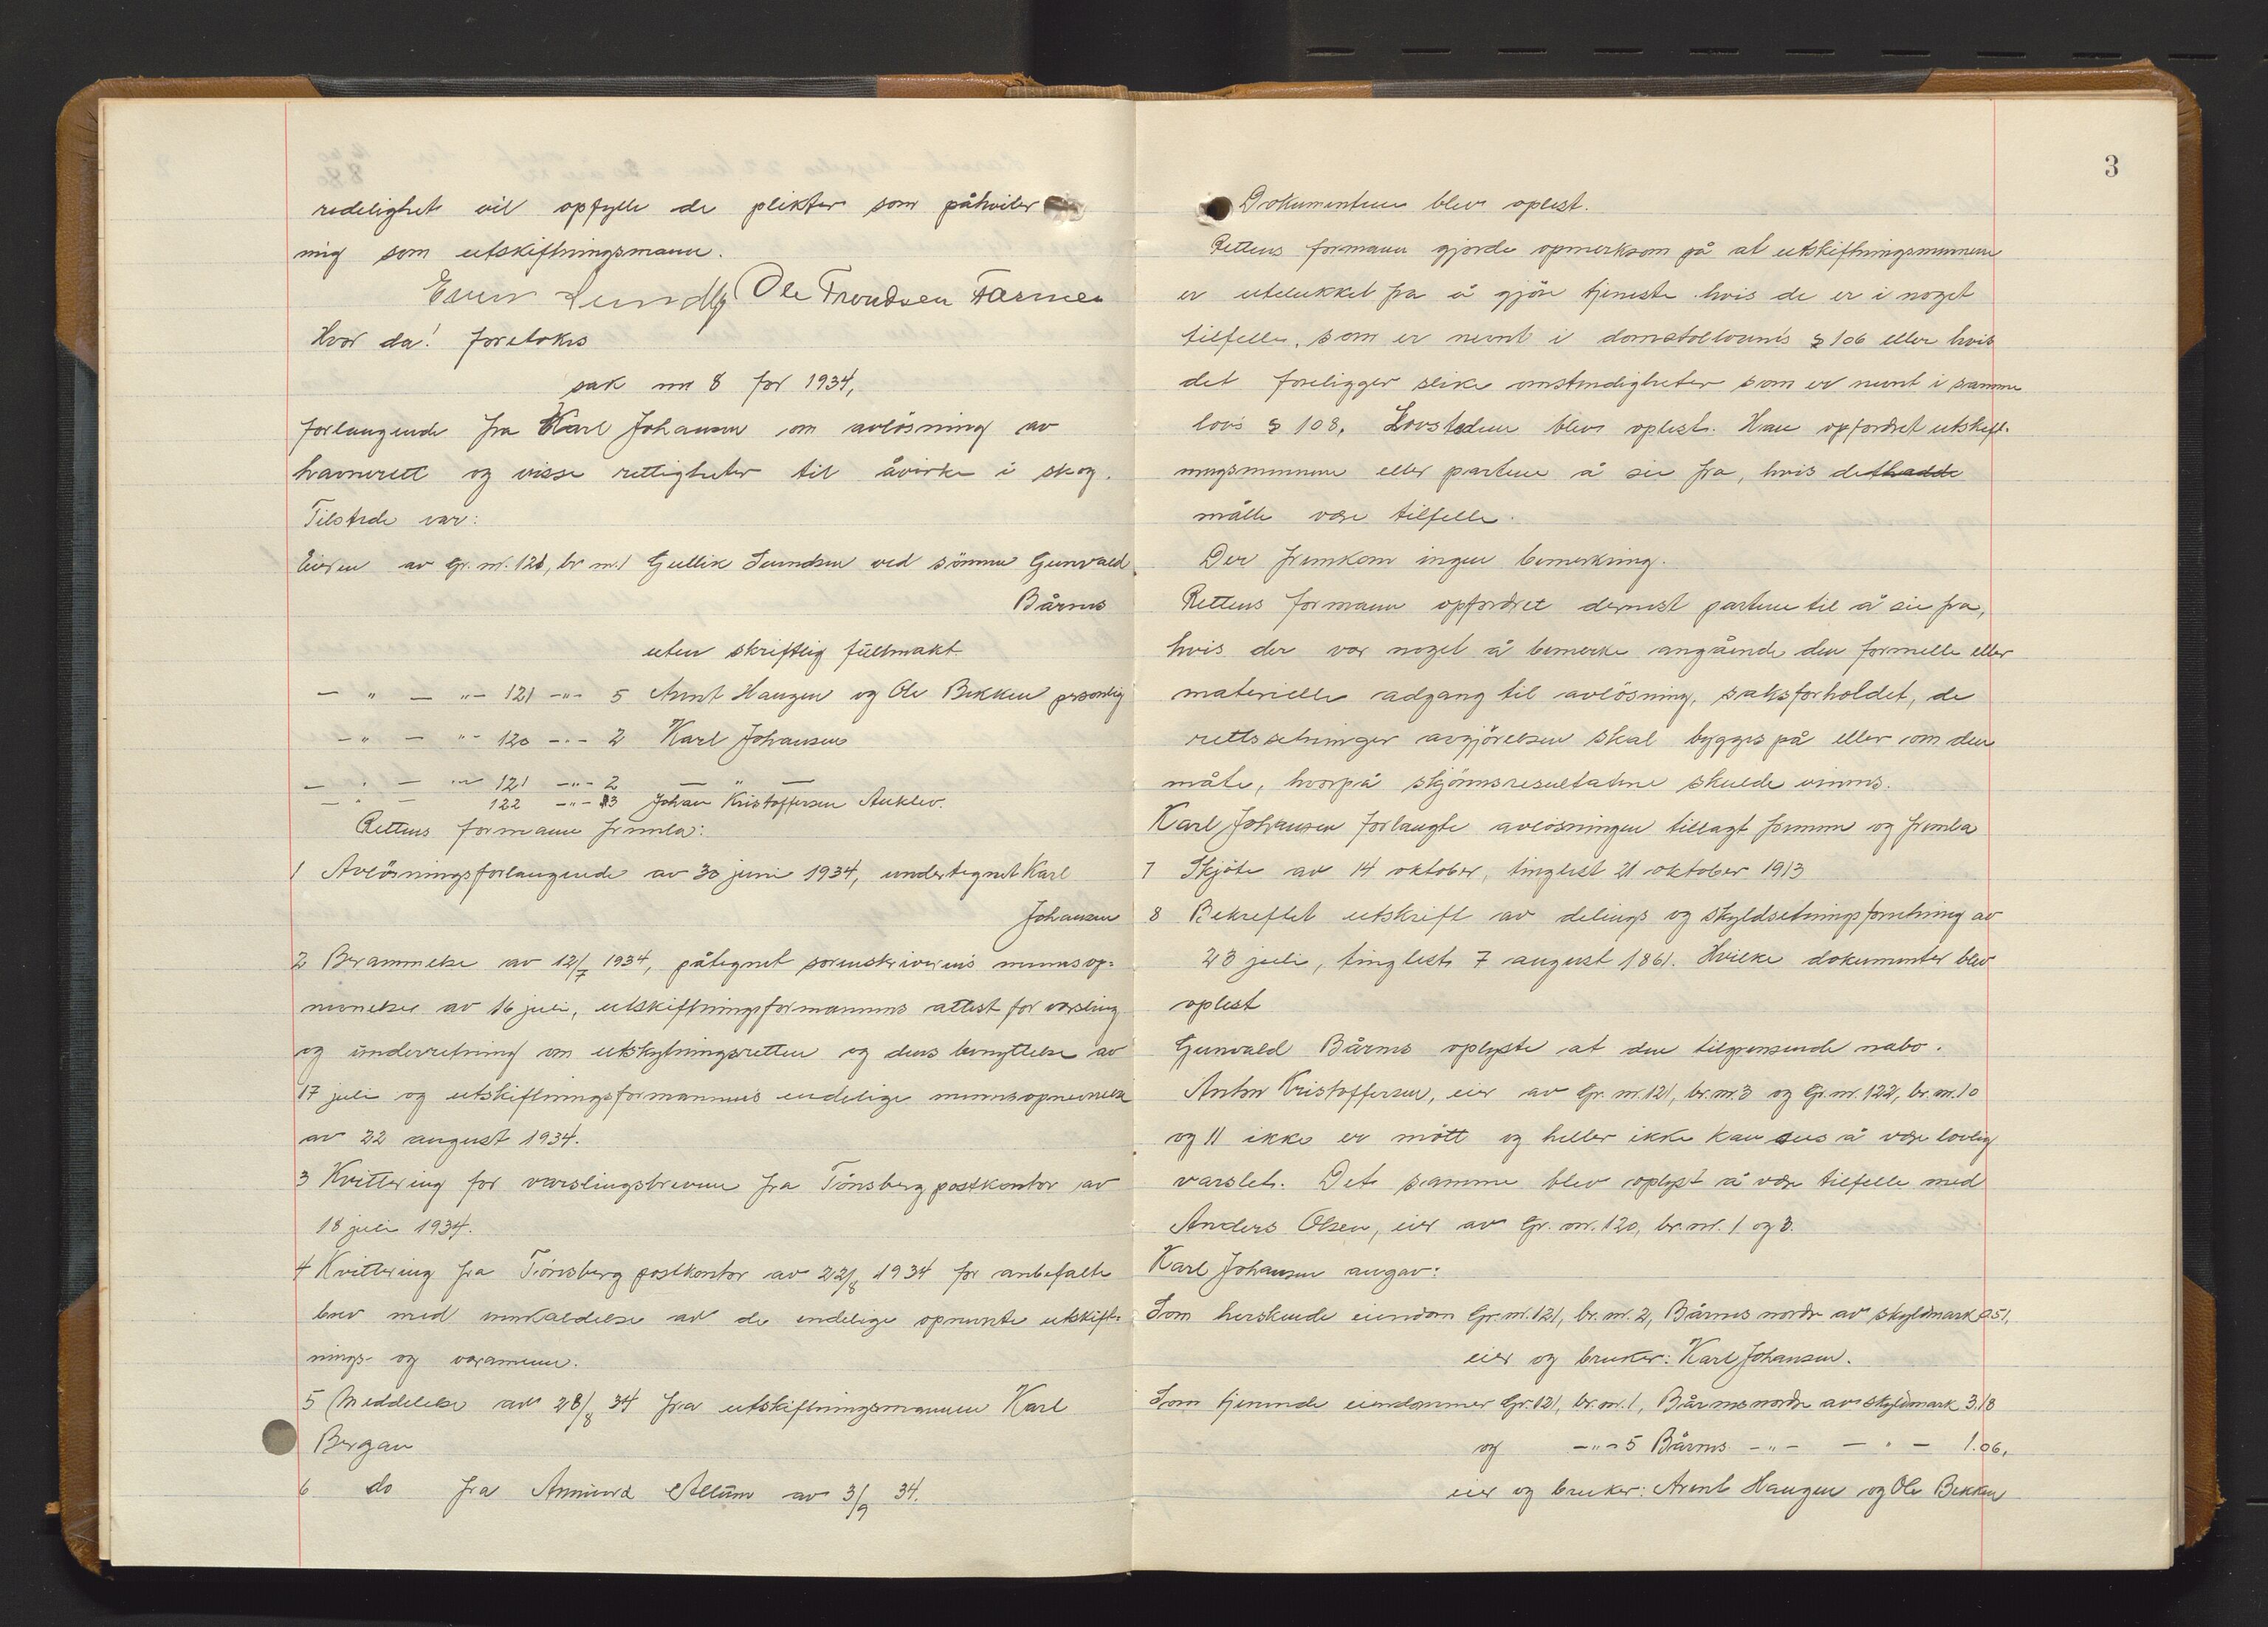 redelighet vil opfylle de plikter som påhviler
mig som utskiftningsmann.
Ole Trondsen Farmen
Hvor da! foretokes
sak nr 8 for 1934,
forlangende fra Karl Johansen om avlösning av
havnerett og visse rettigheter til åvirke i skog.
Tilstede var:
Eieren av Gr. nr. 121, br nr. 1 Gullik Sundsen ved sönnen Gunvald
Bårnes
uten skriftlig fullmakt.
— " — "- 121 -"- 5 Arent Haugen og Ole Bekken personlig
-" — "- 120 -"- 2 Karl Johansen
— " — "- 121 -"- 2 — " —
— " — 122 -"- 3 Johan Kristoffersen Auklev.
Rettens formann fremla:
1 Avlösningsforlangende av 30 juni 1934, undertegnet Karl
Johansen
2 Berammelse av 12/7 1934, påtegnet sorenskriverens mannsop-
nevnelse av 16 juli, utskiftningsformannens attest for varsling
og underretning om utskytningsretten og dens benyttelse av
17 juli og utskiftningsformannens endelige mannsopnevnelse
av 22 august 1934.
3 Kvittering for varslingsbrevene fra Tönsberg postkontor av
18 juli 1934.
4 Kvittering fra Tönsberg postkontor av 22/8 1934 for anbefalte
brev med innkaldelse av de endelige opnevnte utskift-
nings- og varamenn.
5 Meddelelse av 28/8 34 fra utskiftningsmannen Karl
Bergan
6 do fra av 3/9 34.
3
Dokumentene blev oplest.
Rettens formann gjorde opmerksom på at utskiftningsmennene
er utelukket fra å gjöre tjeneste hvis de er i noget
tilfelle, som er nevnt i domstollovens § 106 eller hvis
det foreligger slike omstendigheter som er nevnt i samme
lovs § 108. Lovstedene blev oplest. Han opfordret utskift-
ningsmennene eller partene å sie fra, hvis det hadde
måtte være tilfelle.
Der fremkom ingen bemerkning.
Rettens formann opfordret dernest partene til å sie fra,
hvis der var noget å bemerke angående den formelle eller
materielle adgang til avlösning, saksforholdet, de
rettssetninger avgjörelsen skal bygges på eller om den
måte, hvorpå skjönnsresultatene skulde vinnes.
Karl Johansen forlangte avlösningen tillagt fremme og fremla
7 Skjöte av 14 oktober, tinglest 21 oktober 1913
8 Bekreftet utskrift av delings og skyldsetningsforretning av
23 juli, tinglest 7 august 1861. Hvilke dokumenter blev
oplest
Gunvald Bårnes oplyste at den tilgrensende nabo.
Anton Kristoffersen, eier av Gr. nr. 121, br. nr. 3 og Gr. nr. 122, br. nr. 10
og 11 ikke er mött og heller ikke kan sees å være lovlig
varslet. Det samme blev oplyst å være tilfelle med
Anders Olsen, eier av Gr. nr. 120, br. nr. 1 og 3.
Karl Johansen angav:
Som herskende eiendom Gr. nr. 121, br. nr. 2, Bårnes nordre av skyldmark 0.51,
eier og bruker: Karl Johansen.
Som tjenende eiendommer Gr. 121, br. nr. 1, Bårnes nordre av skyldmark 3.18
og -"- 5 Bårnes -"- — " — 1.06,
eier og bruker: Arent Haugen og Ole Bekken